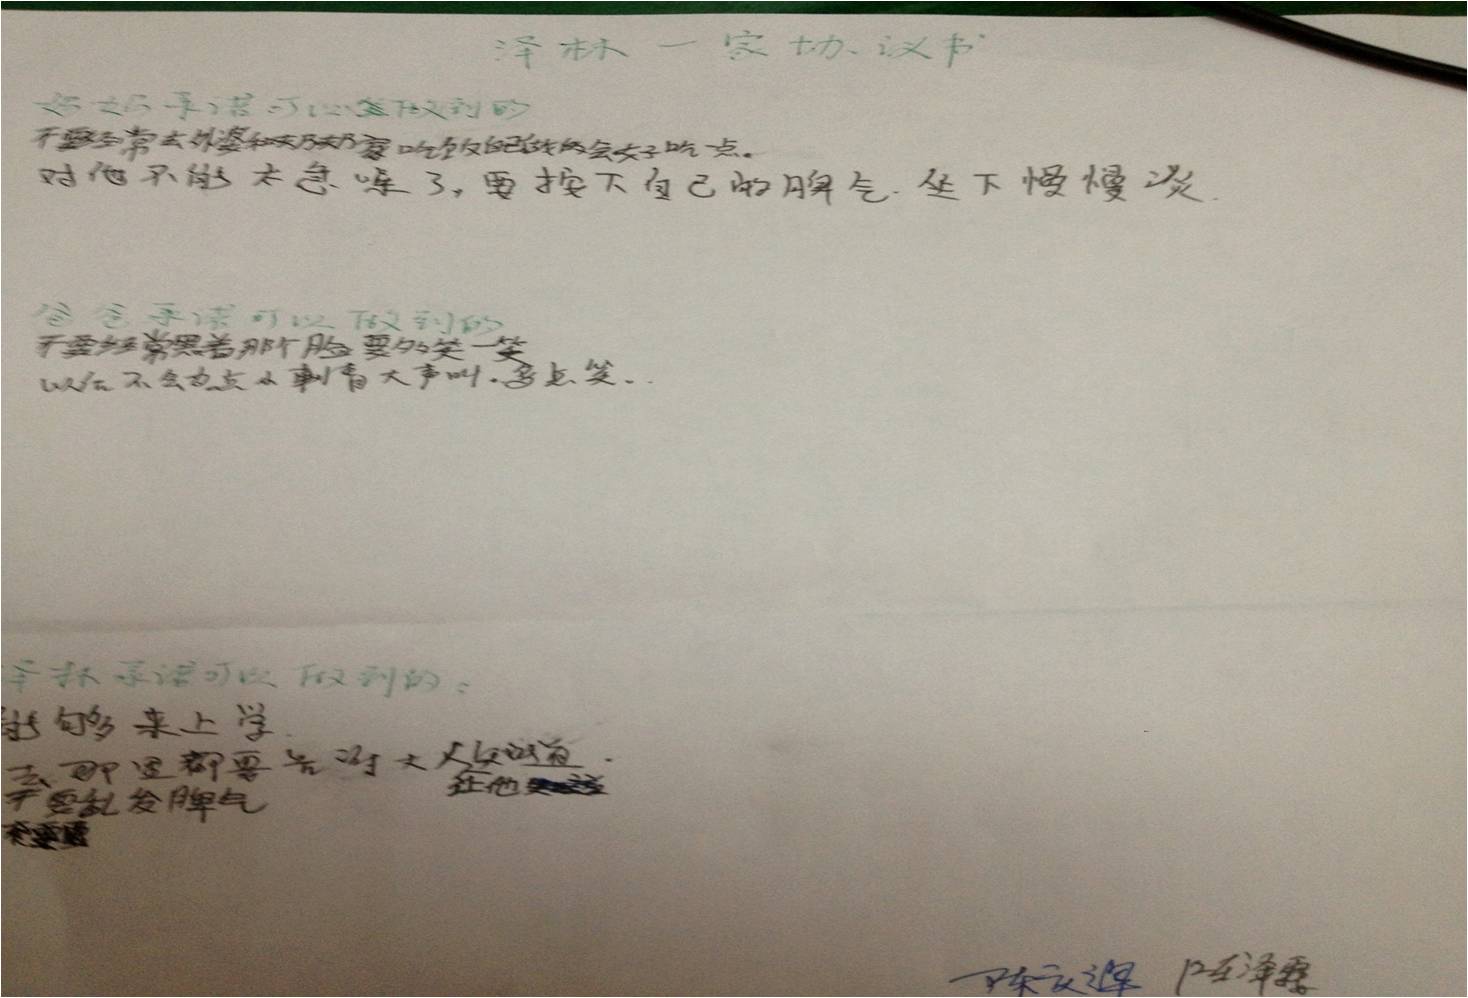 泽林一家协议书
妈妈承诺可以做到的
不要经常去外婆和奶奶家吃饭自己做的会好吃点。
对他不能太急噪了,要按下自己的脾气.坐下慢慢谈.
爸爸承诺可以做到的
不要经常黑着那个脸要多笑一笑
以后不会为点小事情大声叫.多点笑..
泽林承诺可以做到的:
能够来上学.
去那里都要告诉大人
在他
不要乱发脾气
陈文 陈泽霖